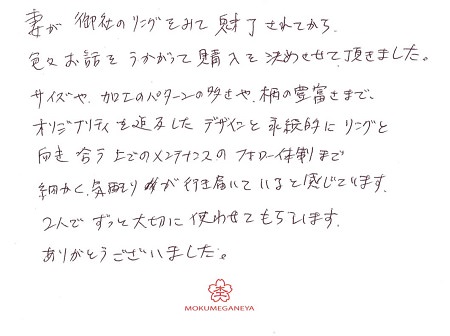 妻が 御社のリングをみて魅了されてから、
色々お話をうかがって購入を決めさせて頂きました。
サイズや、加工のパターンの多さや、柄の豊富さまで、
オリジナリティを追及したデザインと永続的にリングと
向き合う上でのメンテナンスのフォロー体制まで
細かく、気配りが行き届いていると感じています。
2人でずっと大切に使わせてもらいます。
ありがとうございました。
MOKUMEGANEYA